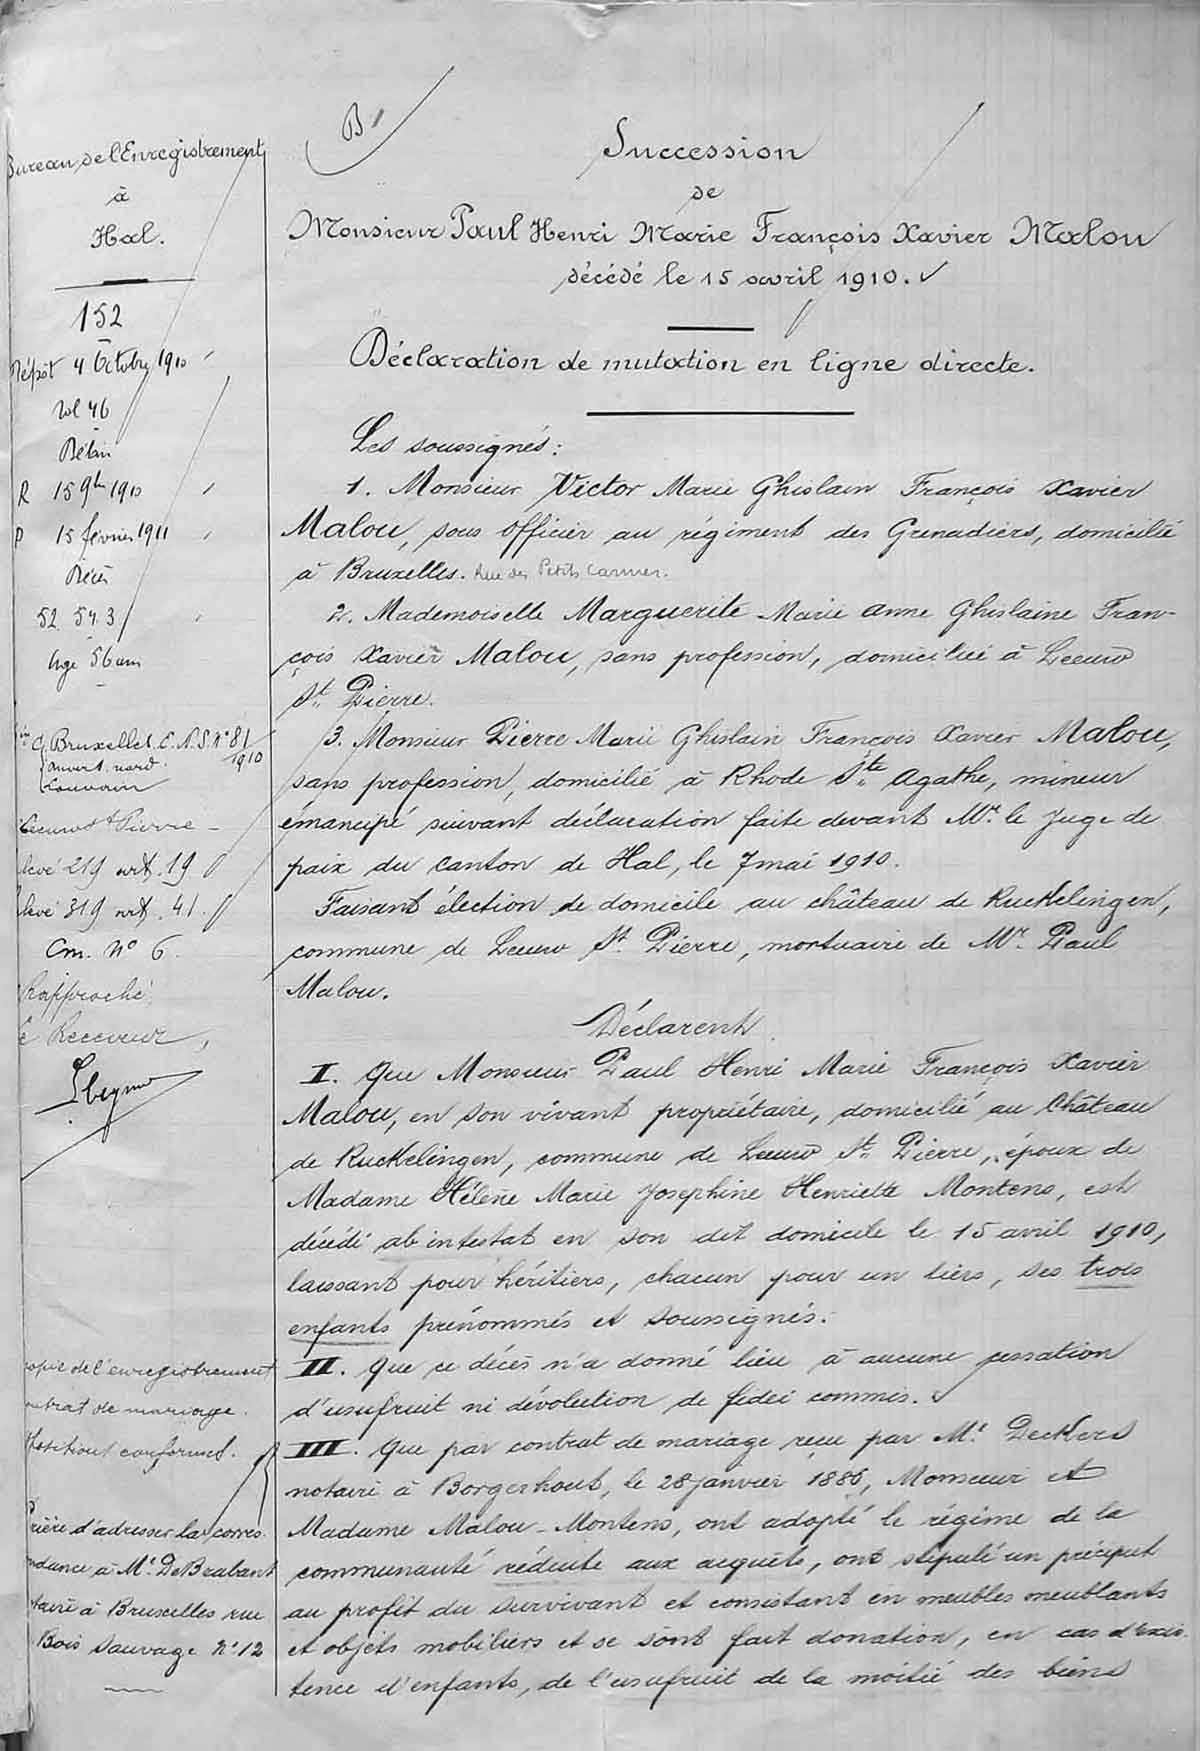 B
Bureau de l'Enregistrement
à
Hal.
152
Dépôt 4 Octobre 1910
vol 46
R 15 9bre 1910
P 15 février 1911
Décès
52 54.3
Age 56 ans
C. Bruxelles E. N. S. N° 81
1910
nord
Louvain
Leeuw St Pierre
219 art. 19
319 art. 41.
Cm. N° 6
Rapproché
Le Receveur,
copie de l'enregistrement
contrat de mariage.
conformes.
Prière d'adresser la corres-
pondance à Mr. De Brabant
notaire à Bruxelles rue
Bois Sauvage N° 12
Succession
de
Monsieur Paul Henri Marie François Xavier Malou
décédé le 15 avril 1910.
Déclaration de mutation en ligne directe.
Les soussignés:
1. Monsieur Victor Marie Ghislain François Xavier
Malou, sous officier au régiment des Grenadiers, domicilié
à Bruxelles. Rue des Petits Carmes.
2. Mademoiselle Marguerite Marie Anne Ghislaine Fran-
çois Xavier Malou, sans profession, domiciliée à Leeuw
St. Pierre.
3. Monsieur Pierre Marie Ghislain François Xavier Malou,
sans profession, domicilié à Rhode Ste Agathe, mineur
émancipé suivant déclaration faite devant Mr. le Juge de
paix du canton de Hal, le 7 mai 1910.
Faisant élection de domicile au château de Ruckelingen,
commune de Leeuw St. Pierre, mortuaire de Mr. Paul
Malou.
Déclarent
I. Que Monsieur Paul Henri Marie François Xavier
Malou, en son vivant propriétaire, domicilié au Château
de Ruckelingen, commune de Leeuw St. Pierre, époux de
Madame Hélène Marie Josephine Henriette Montens, est
décédé ab intestat en son dit domicile le 15 avril 1910,
laissant pour héritiers, chacun pour un tiers, ses trois
enfants prénommés et soussignés.
II. Que ce décès n'a donné lieu à aucune cessation
d'usufruit ni dévolution de fidei commis.
III. Que par contrat de mariage reçu par Mr. Deckers
notaire à Borgerhout, le 28 janvier 1886, Monsieur et
Madame Malou-Montens, ont adopté le régime de la
communauté réduite aux acquêts, ont stipulé un préciput
au profit du survivant et consistant en meubles meublants
et objets mobiliers et se sont fait donation, en cas d'exis-
tence d'enfants, de l'usufruit de la moitié des biens